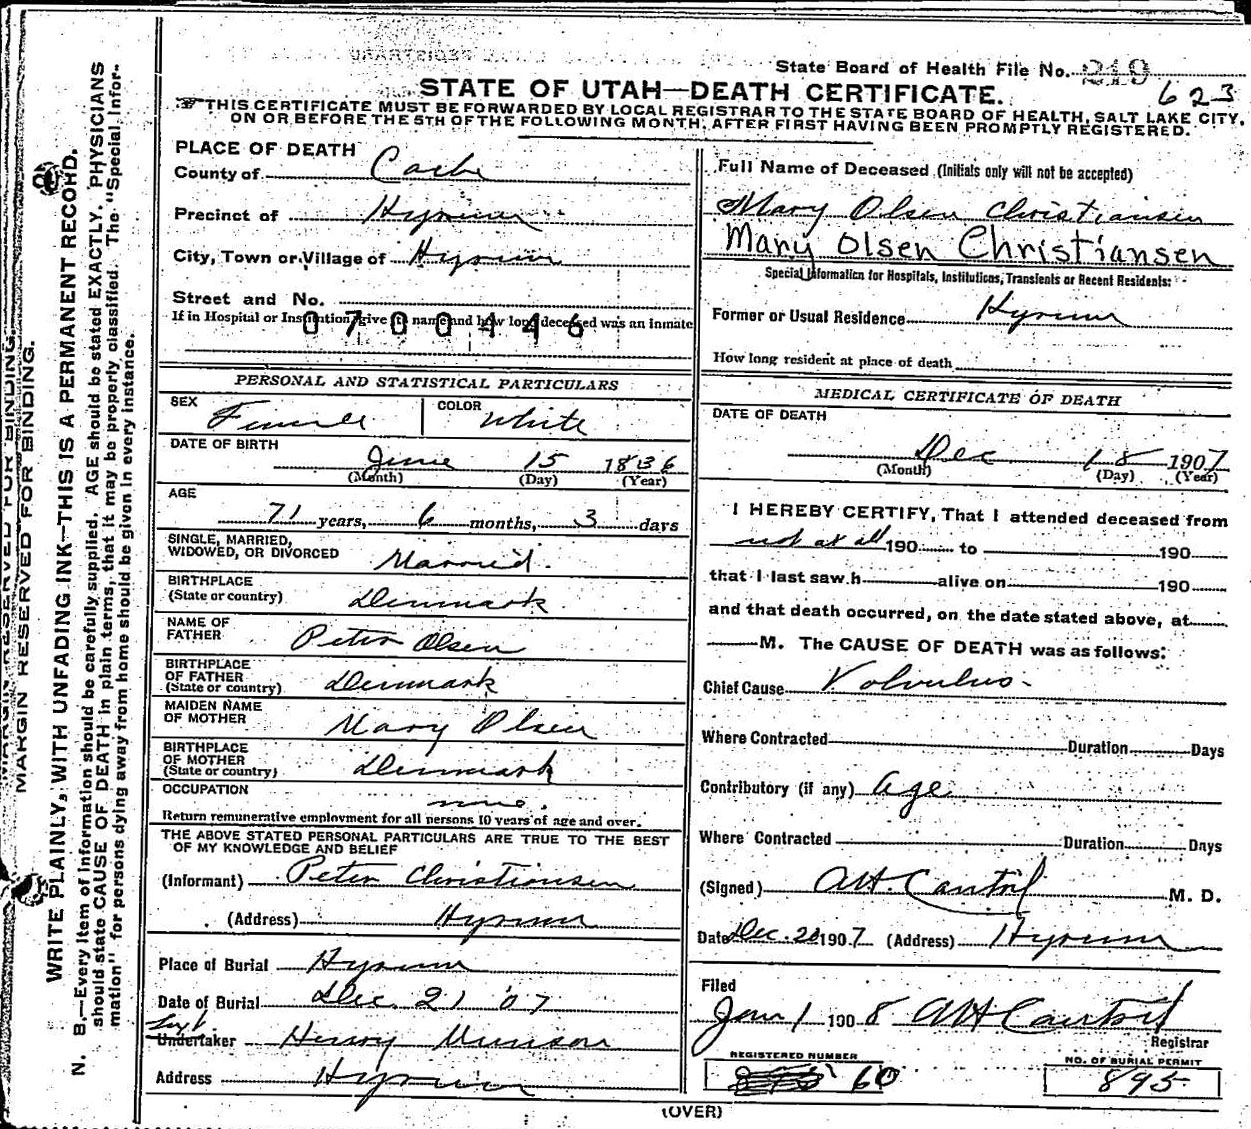 State Board of Health File No. 219
623
STATE OF UTAH—DEATH CERTIFICATE.
THIS CERTIFICATE MUST BE FORWARDED BY LOCAL REGISTRAR TO THE STATE BOARD OF HEALTH, SALT LAKE CITY,
ON OR BEFORE THE 5TH OF THE FOLLOWING MONTH, AFTER FIRST HAVING BEEN PROMPTLY REGISTERED.
MARGIN RESERVED FOR BINDING.
WRITE PLAINLY, WITH UNFADING INK—THIS IS A PERMANENT RECORD.
N. B.—Every item of information should be carefully supplied. AGE should be stated EXACTLY. PHYSICIANS
should state CAUSE OF DEATH in plain terms, that it may be properly classified. The "Special Infor-
mation" for persons dying away from home should be given in every instance.
PLACE OF DEATH
County of Cache
Precinct of Hyrum
City, Town or Village of Hyrum
Street and No.
If in Hospital or Institution, give its name and how long deceased was an inmate
0700446
PERSONAL AND STATISTICAL PARTICULARS
SEX Female COLOR White
DATE OF BIRTH
June 15 1836
(Month) (Day) (Year)
AGE
71 years, 6 months, 3 days
SINGLE, MARRIED,
WIDOWED, OR DIVORCED Married.
BIRTHPLACE
(State or country) Denmark
NAME OF
FATHER Peter Olsen
BIRTHPLACE
OF FATHER
(State or country) Denmark
MAIDEN NAME
OF MOTHER Mary Olsen
BIRTHPLACE
OF MOTHER
(State or country) Denmark
OCCUPATION
none.
Return remunerative employment for all persons 10 years of age and over.
THE ABOVE STATED PERSONAL PARTICULARS ARE TRUE TO THE BEST
OF MY KNOWLEDGE AND BELIEF
(Informant) Peter Christiansen
(Address) Hyrum
Place of Burial Hyrum
Date of Burial Dec 21 '07
Sext
Undertaker Henry Munson
Address Hyrum
Full Name of Deceased (Initials only will not be accepted)
Mary Olsen Christiansen
Mary Olsen Christiansen
Special Information for Hospitals, Institutions, Transients or Recent Residents:
Former or Usual Residence Hyrum
How long resident at place of death
MEDICAL CERTIFICATE OF DEATH
DATE OF DEATH
Dec 18 1907
(Month) (Day) (Year)
I HEREBY CERTIFY, That I attended deceased from
not at all 190 to 190
that I last saw h alive on 190
and that death occurred, on the date stated above, at
M. The CAUSE OF DEATH was as follows:
Chief Cause Volvulus.
Where Contracted Duration Days
Contributory (if any) Age
Where Contracted Duration Days
(Signed) AH. Cantril M. D.
Date Dec. 20 1907 (Address) Hyrum
Filed
Jan 1 1908 AH Cantril
Registrar
REGISTERED NUMBER
60
NO. OF BURIAL PERMIT
895
(OVER)